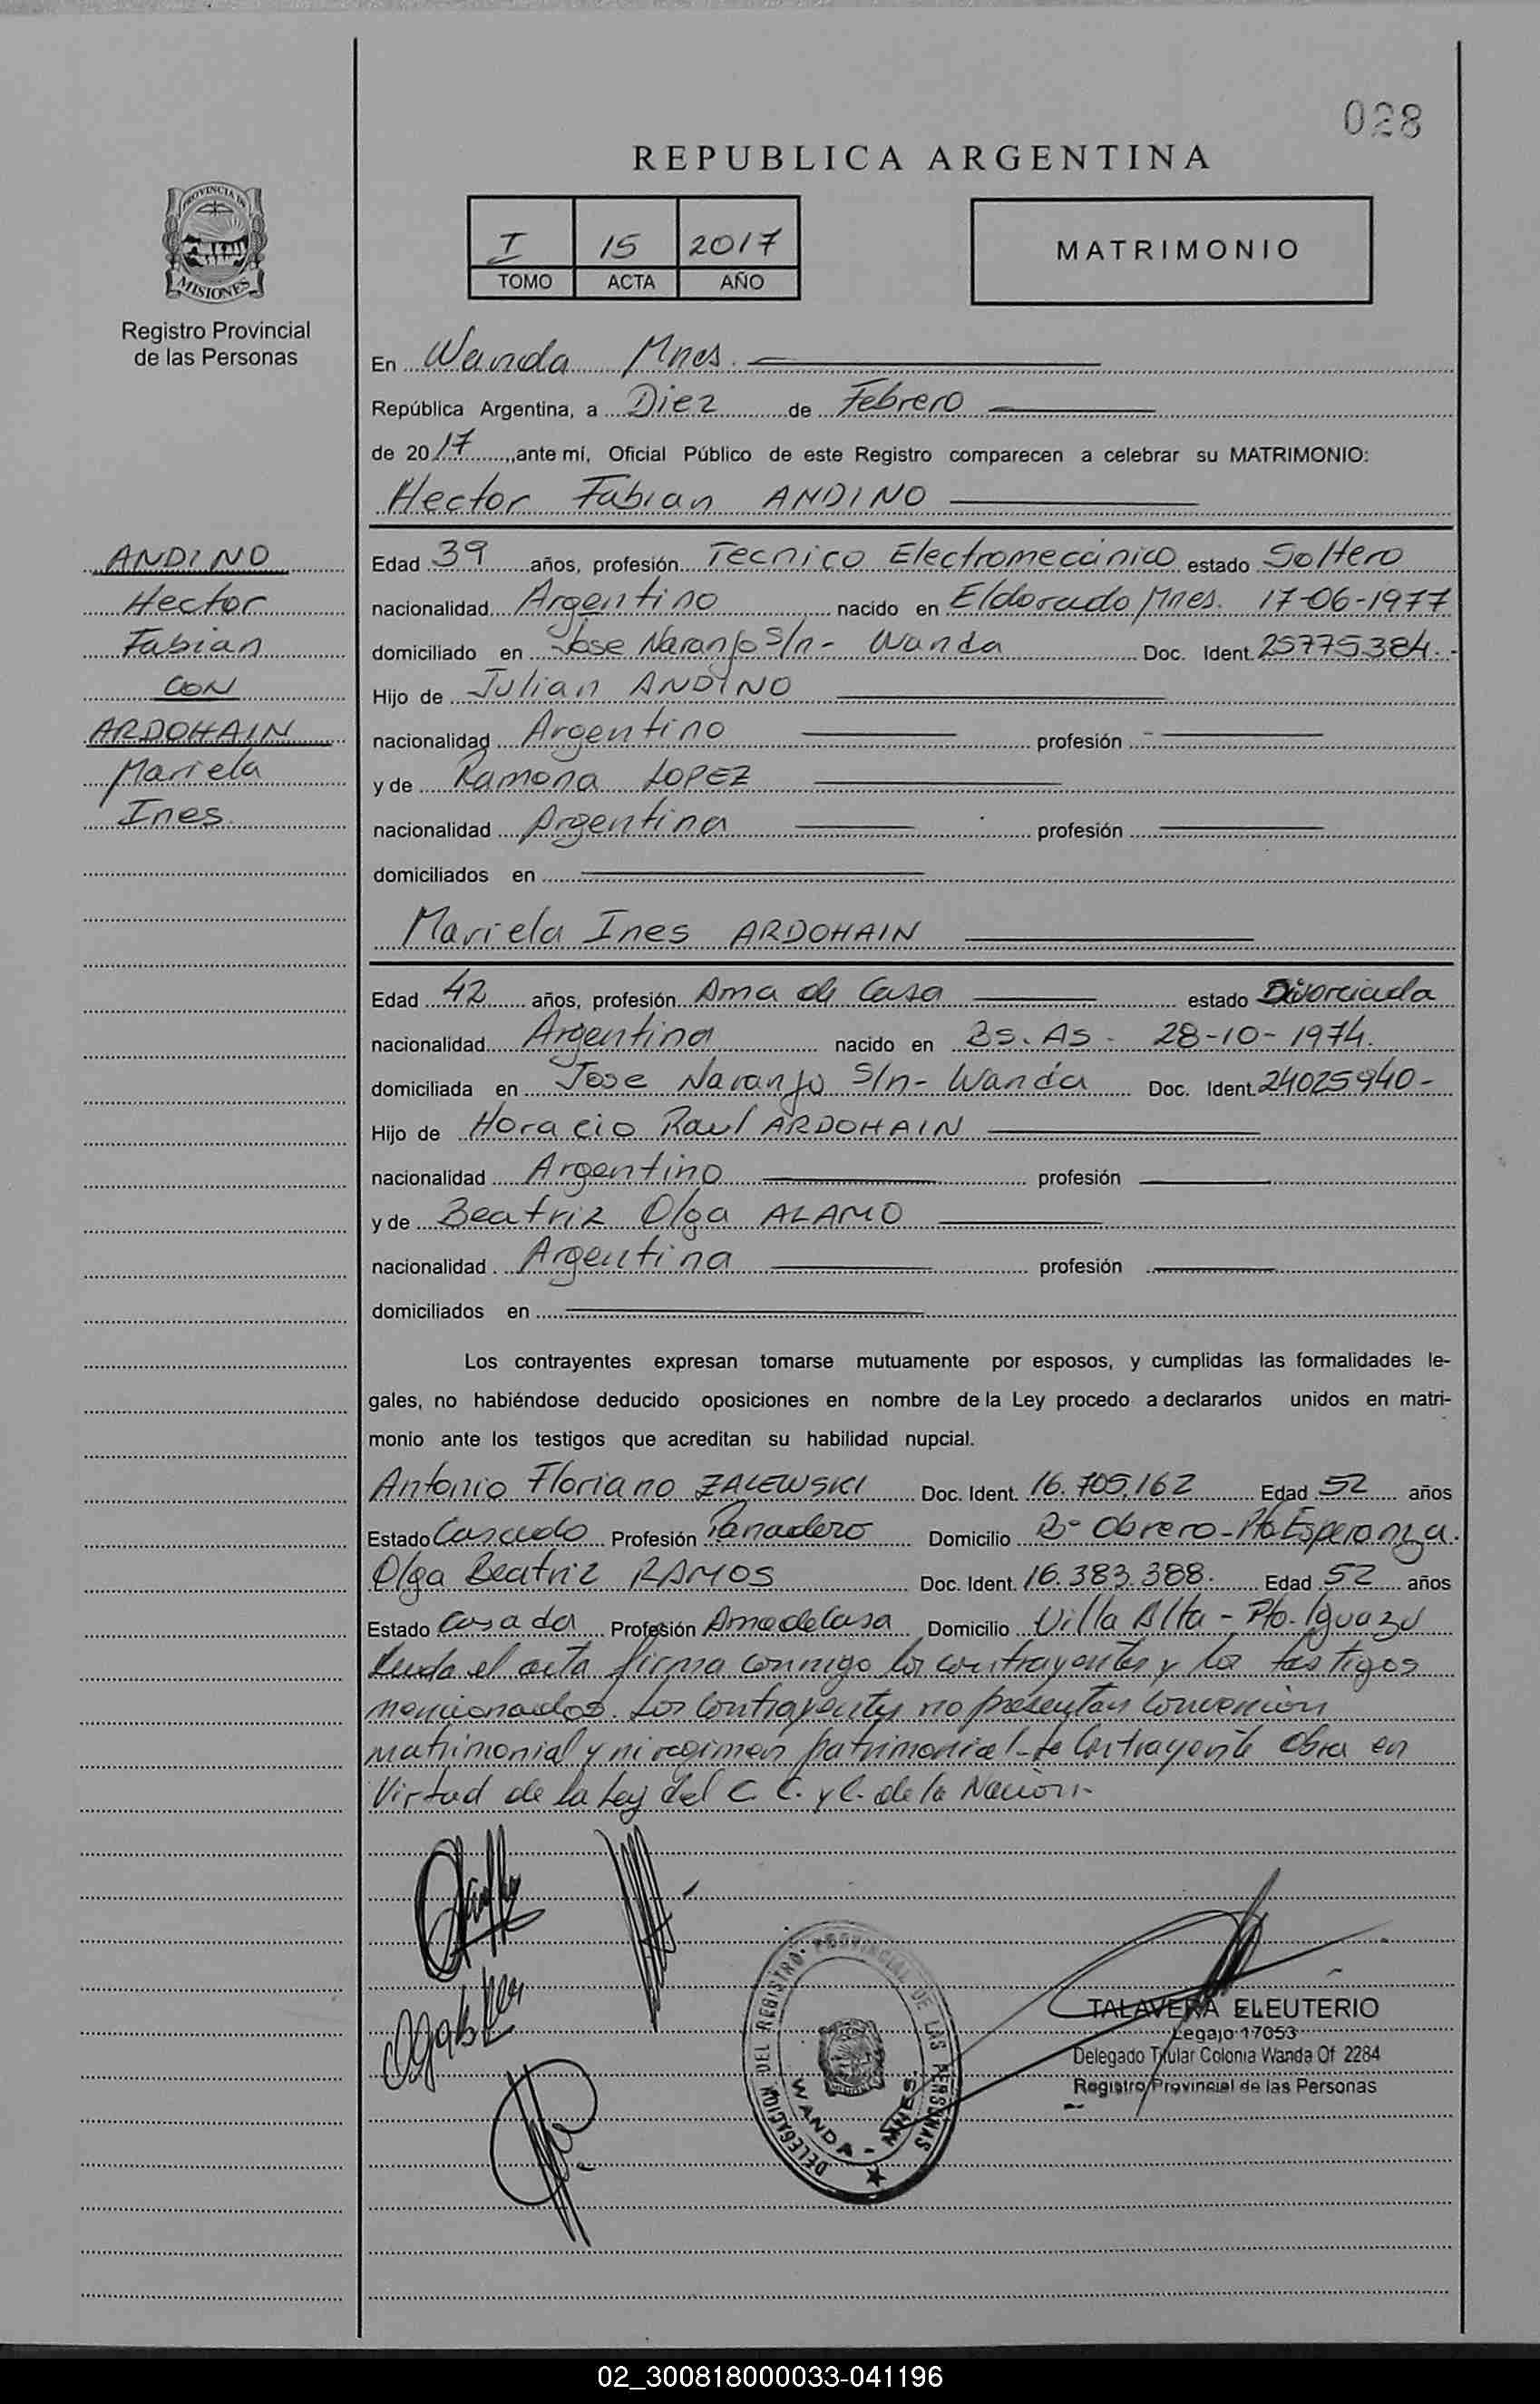 028
REPUBLICA ARGENTINA
PROVINCIA DE
MISIONES
Registro Provincial
de las Personas
I 15 2017
TOMO ACTA AÑO
MATRIMONIO
En Wanda Mnes.
República Argentina, a Diez de Febrero
de 2017, ante mí, Oficial Público de este Registro comparecen a celebrar su MATRIMONIO:
Hector Fabian ANDINO
ANDINO
Hector
Fabian
CON
ARDOHAIN
Mariela
Ines
Edad 39 años, profesión Tecnico Electromecánico estado Soltero
nacionalidad Argentino nacido en Eldorado Mnes. 17-06-1977
domiciliado en Jose Naranjo S/n- Wanda Doc. Ident. 25775384.-
Hijo de Julian ANDINO
nacionalidad Argentino profesión
y de Ramona LOPEZ
nacionalidad Argentina profesión
domiciliados en
Mariela Ines ARDOHAIN
Edad 42 años, profesión Ama de Casa estado Divorciada
nacionalidad Argentina nacido en Bs. As - 28-10-1974.
domiciliada en Jose Naranjo S/n- Wanda Doc. Ident. 24025940-
Hijo de Horacio Raul ARDOHAIN
nacionalidad Argentino profesión
y de Beatriz Olga ALAMO
nacionalidad Argentina profesión
domiciliados en
Los contrayentes expresan tomarse mutuamente por esposos, y cumplidas las formalidades le-
gales, no habiéndose deducido oposiciones en nombre de la Ley procedo a declararlos unidos en matri-
monio ante los testigos que acreditan su habilidad nupcial.
Antonio Floriano ZALEWSKI Doc. Ident. 16.705.162 Edad 52 años
Estado Casado Profesión Panadero Domicilio Bº Obrero-Pto Esperanza.
Olga Beatriz RAMOS Doc. Ident. 16.383.388. Edad 52 años
Estado Casada Profesión Ama de Casa Domicilio Villa Alta - Pto. Iguazú
Leida el acta firma conmigo los contrayentes y los testigos
mencionados. Los Contrayentes no presentan Convencion
matrimonial y ni regimen patrimonial- Contrayente Obra en
Virtud de la Ley del C. C. y C. de la Nación-
DELEGACION DEL REGISTRO PROVINCIAL DE LAS PERSONAS
WANDA - MNES
TALAVERA ELEUTERIO
Legajo 17053
Delegado Titular Colonia Wanda Of 2284
Registro Provincial de las Personas
02_300818000033-041196